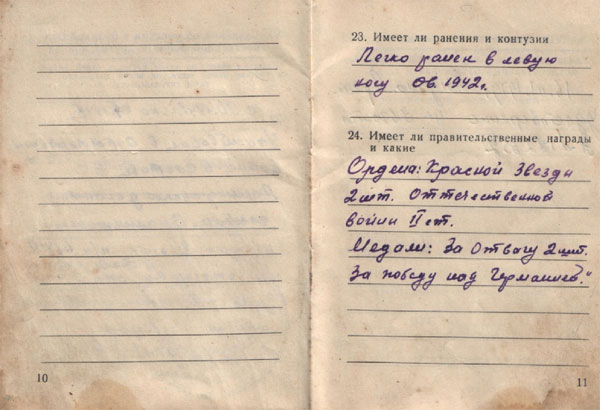 23. Имеет ли ранения и контузии
Легко ранен в левую
ногу 08.1942г.
24. Имеет ли правительственные награды
и какие
Ордена: Красной Звезды
2шт. Оттечественной
войны II ст.
Медали: За Отвагу 2шт.
За победу над Германией."
10
11